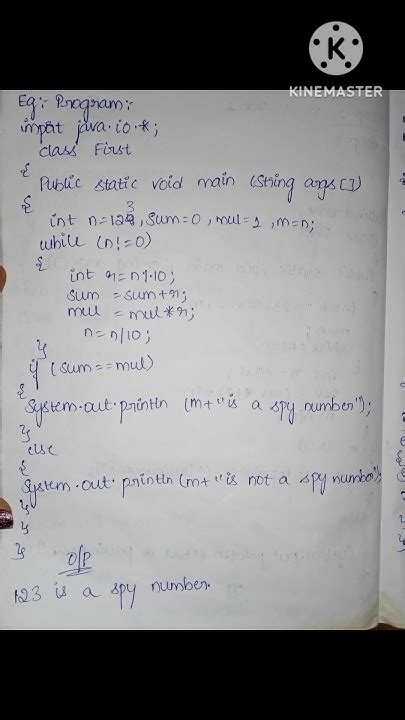 KINEMASTER
Eg:- Program:-
import java.io.*;
class First
{
Public static void main (String args[])
{
int n=123, sum=0, mul=1, m=n;
while (n!=0)
{
int r=n%10;
sum = sum+r;
mul = mul*r;
n=n/10;
}
if (sum==mul)
{
System.out.println (m+"is a spy number");
}
else
{
System.out.println (m+"is not a spy number");
}
}
}
O/P
123 is a spy number.